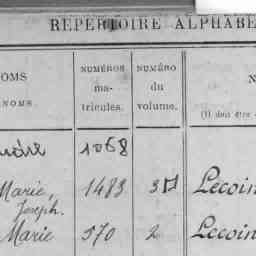 RÉPERTOIRE ALPHABE
NOMS
NOMS
NUMÉROS
ma-
tricules.
NUMÉRO
du
volume.
N
(Il doit être
1068
Marie, 1483 Lecoin
Joseph.
Marie 570 2 Lecoin